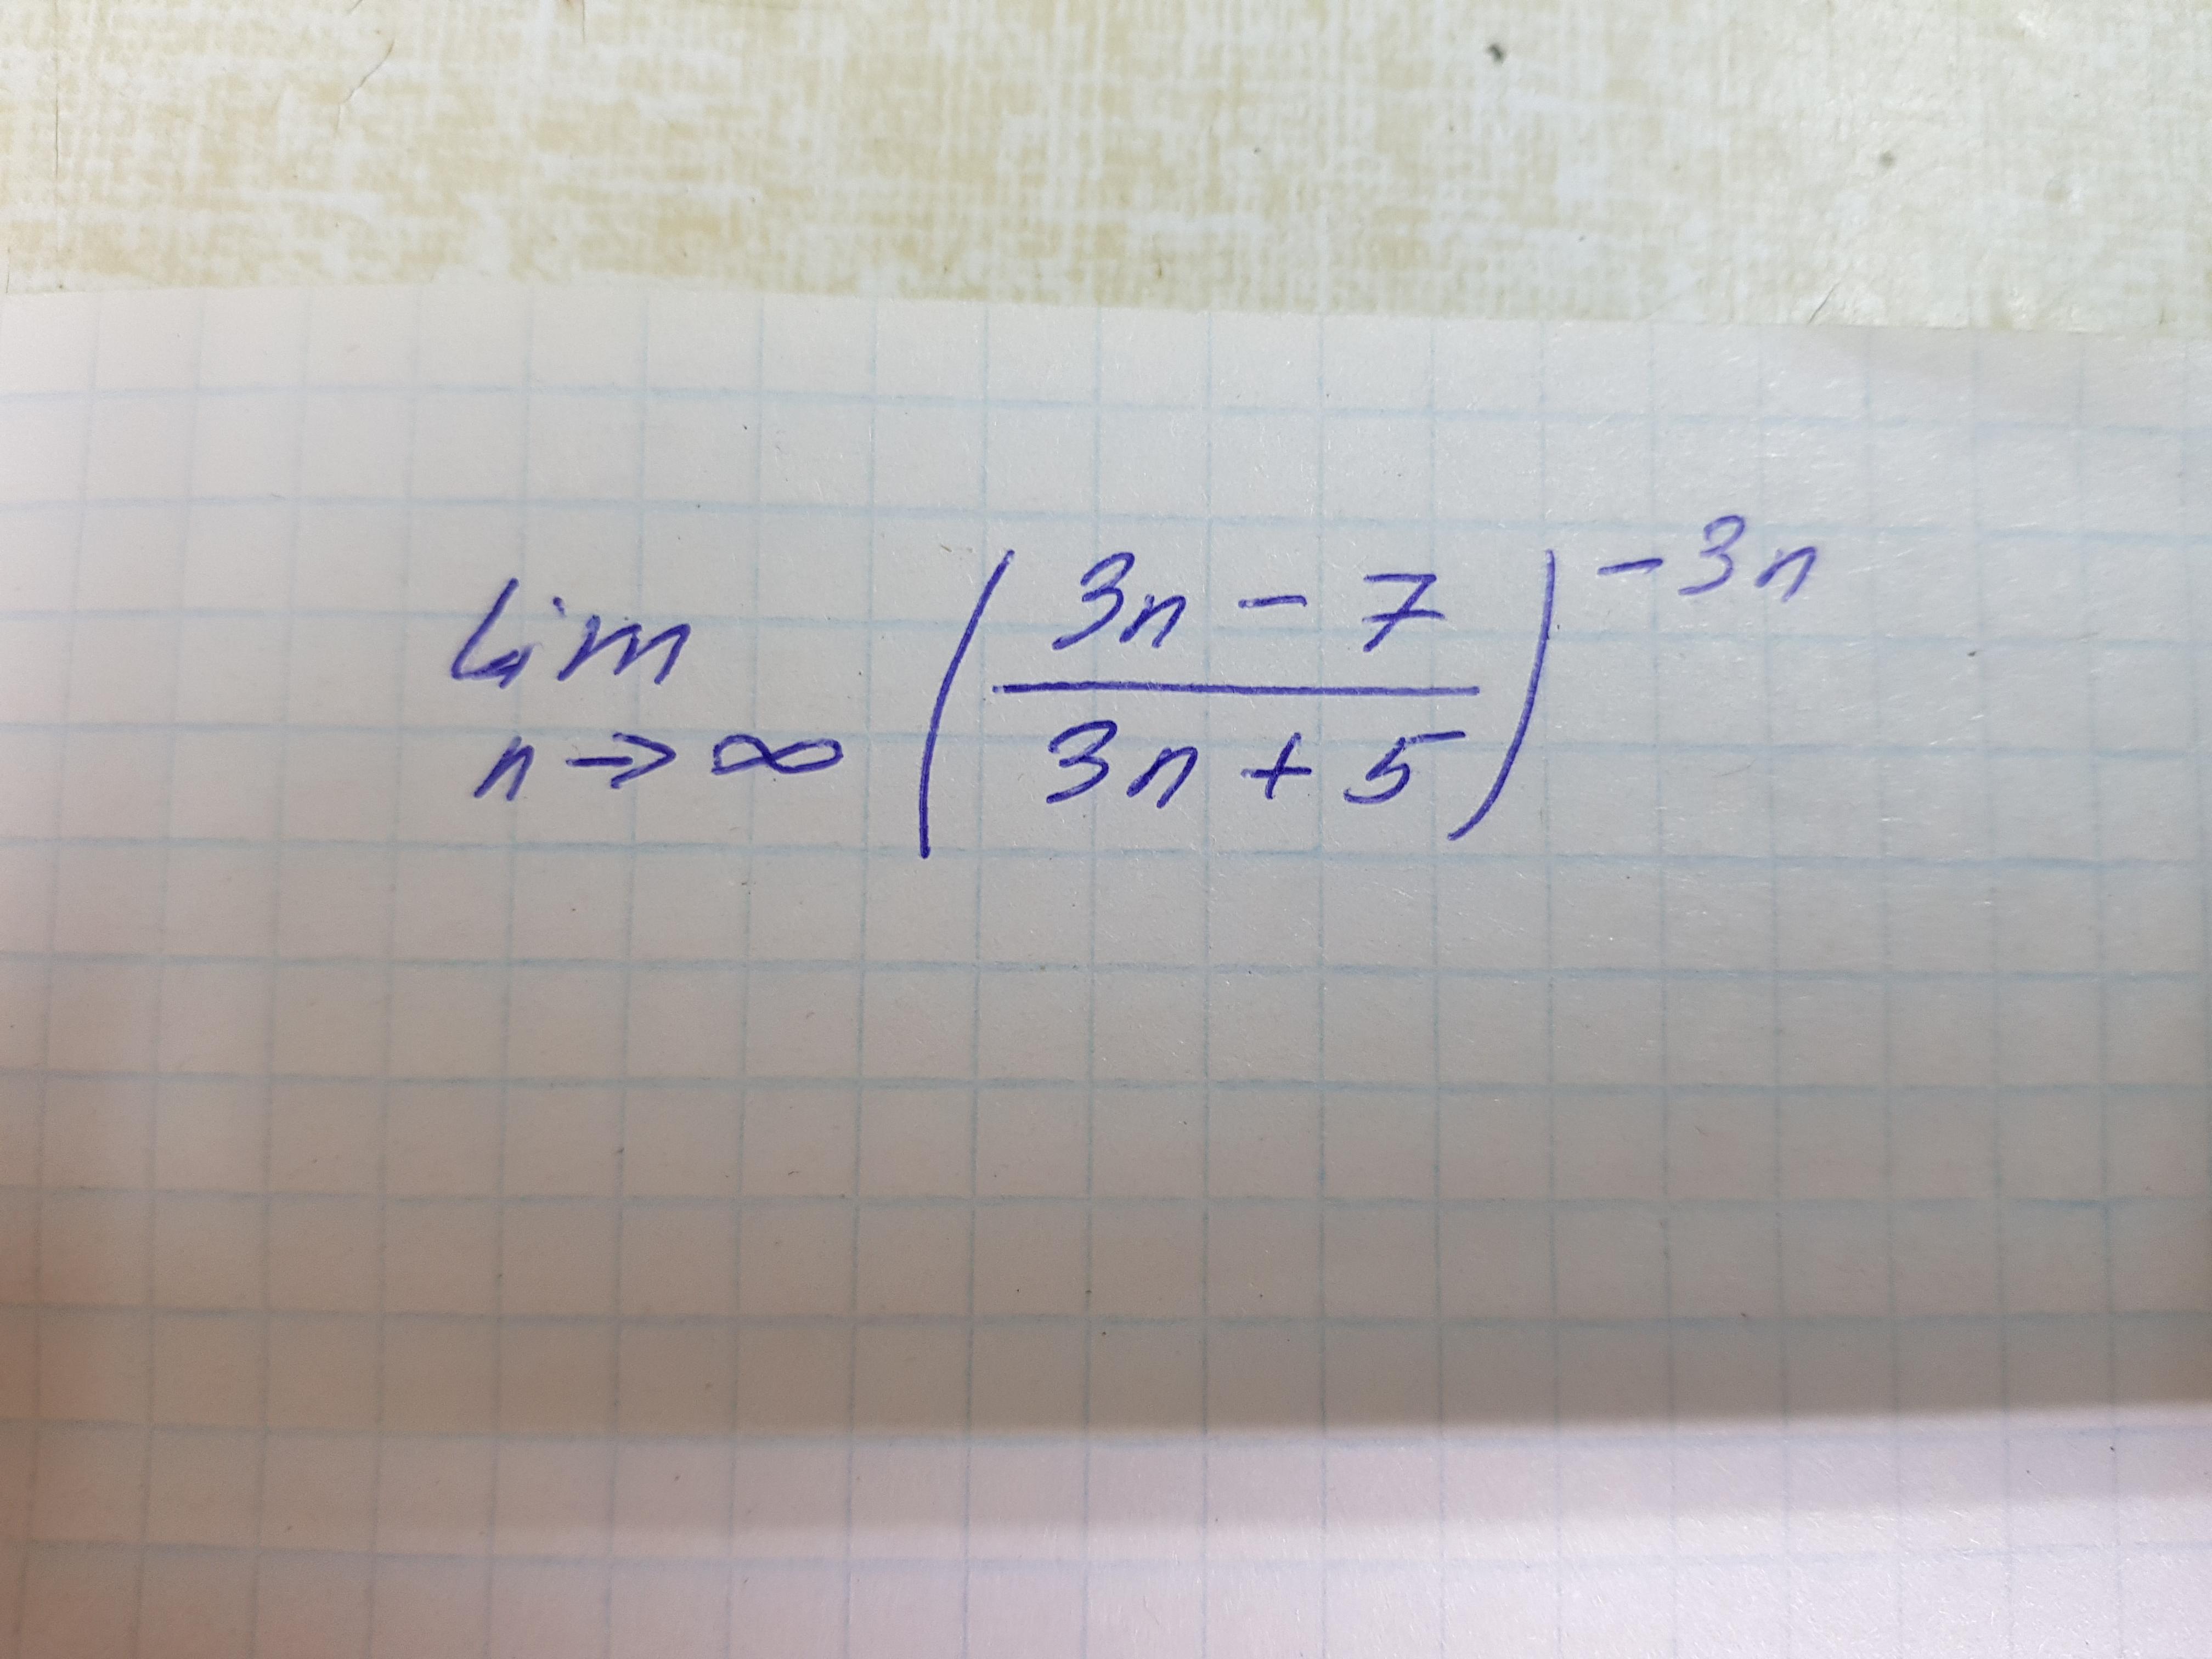 lim ( (3n - 7) / (3n + 5) )^(-3n)
n → ∞